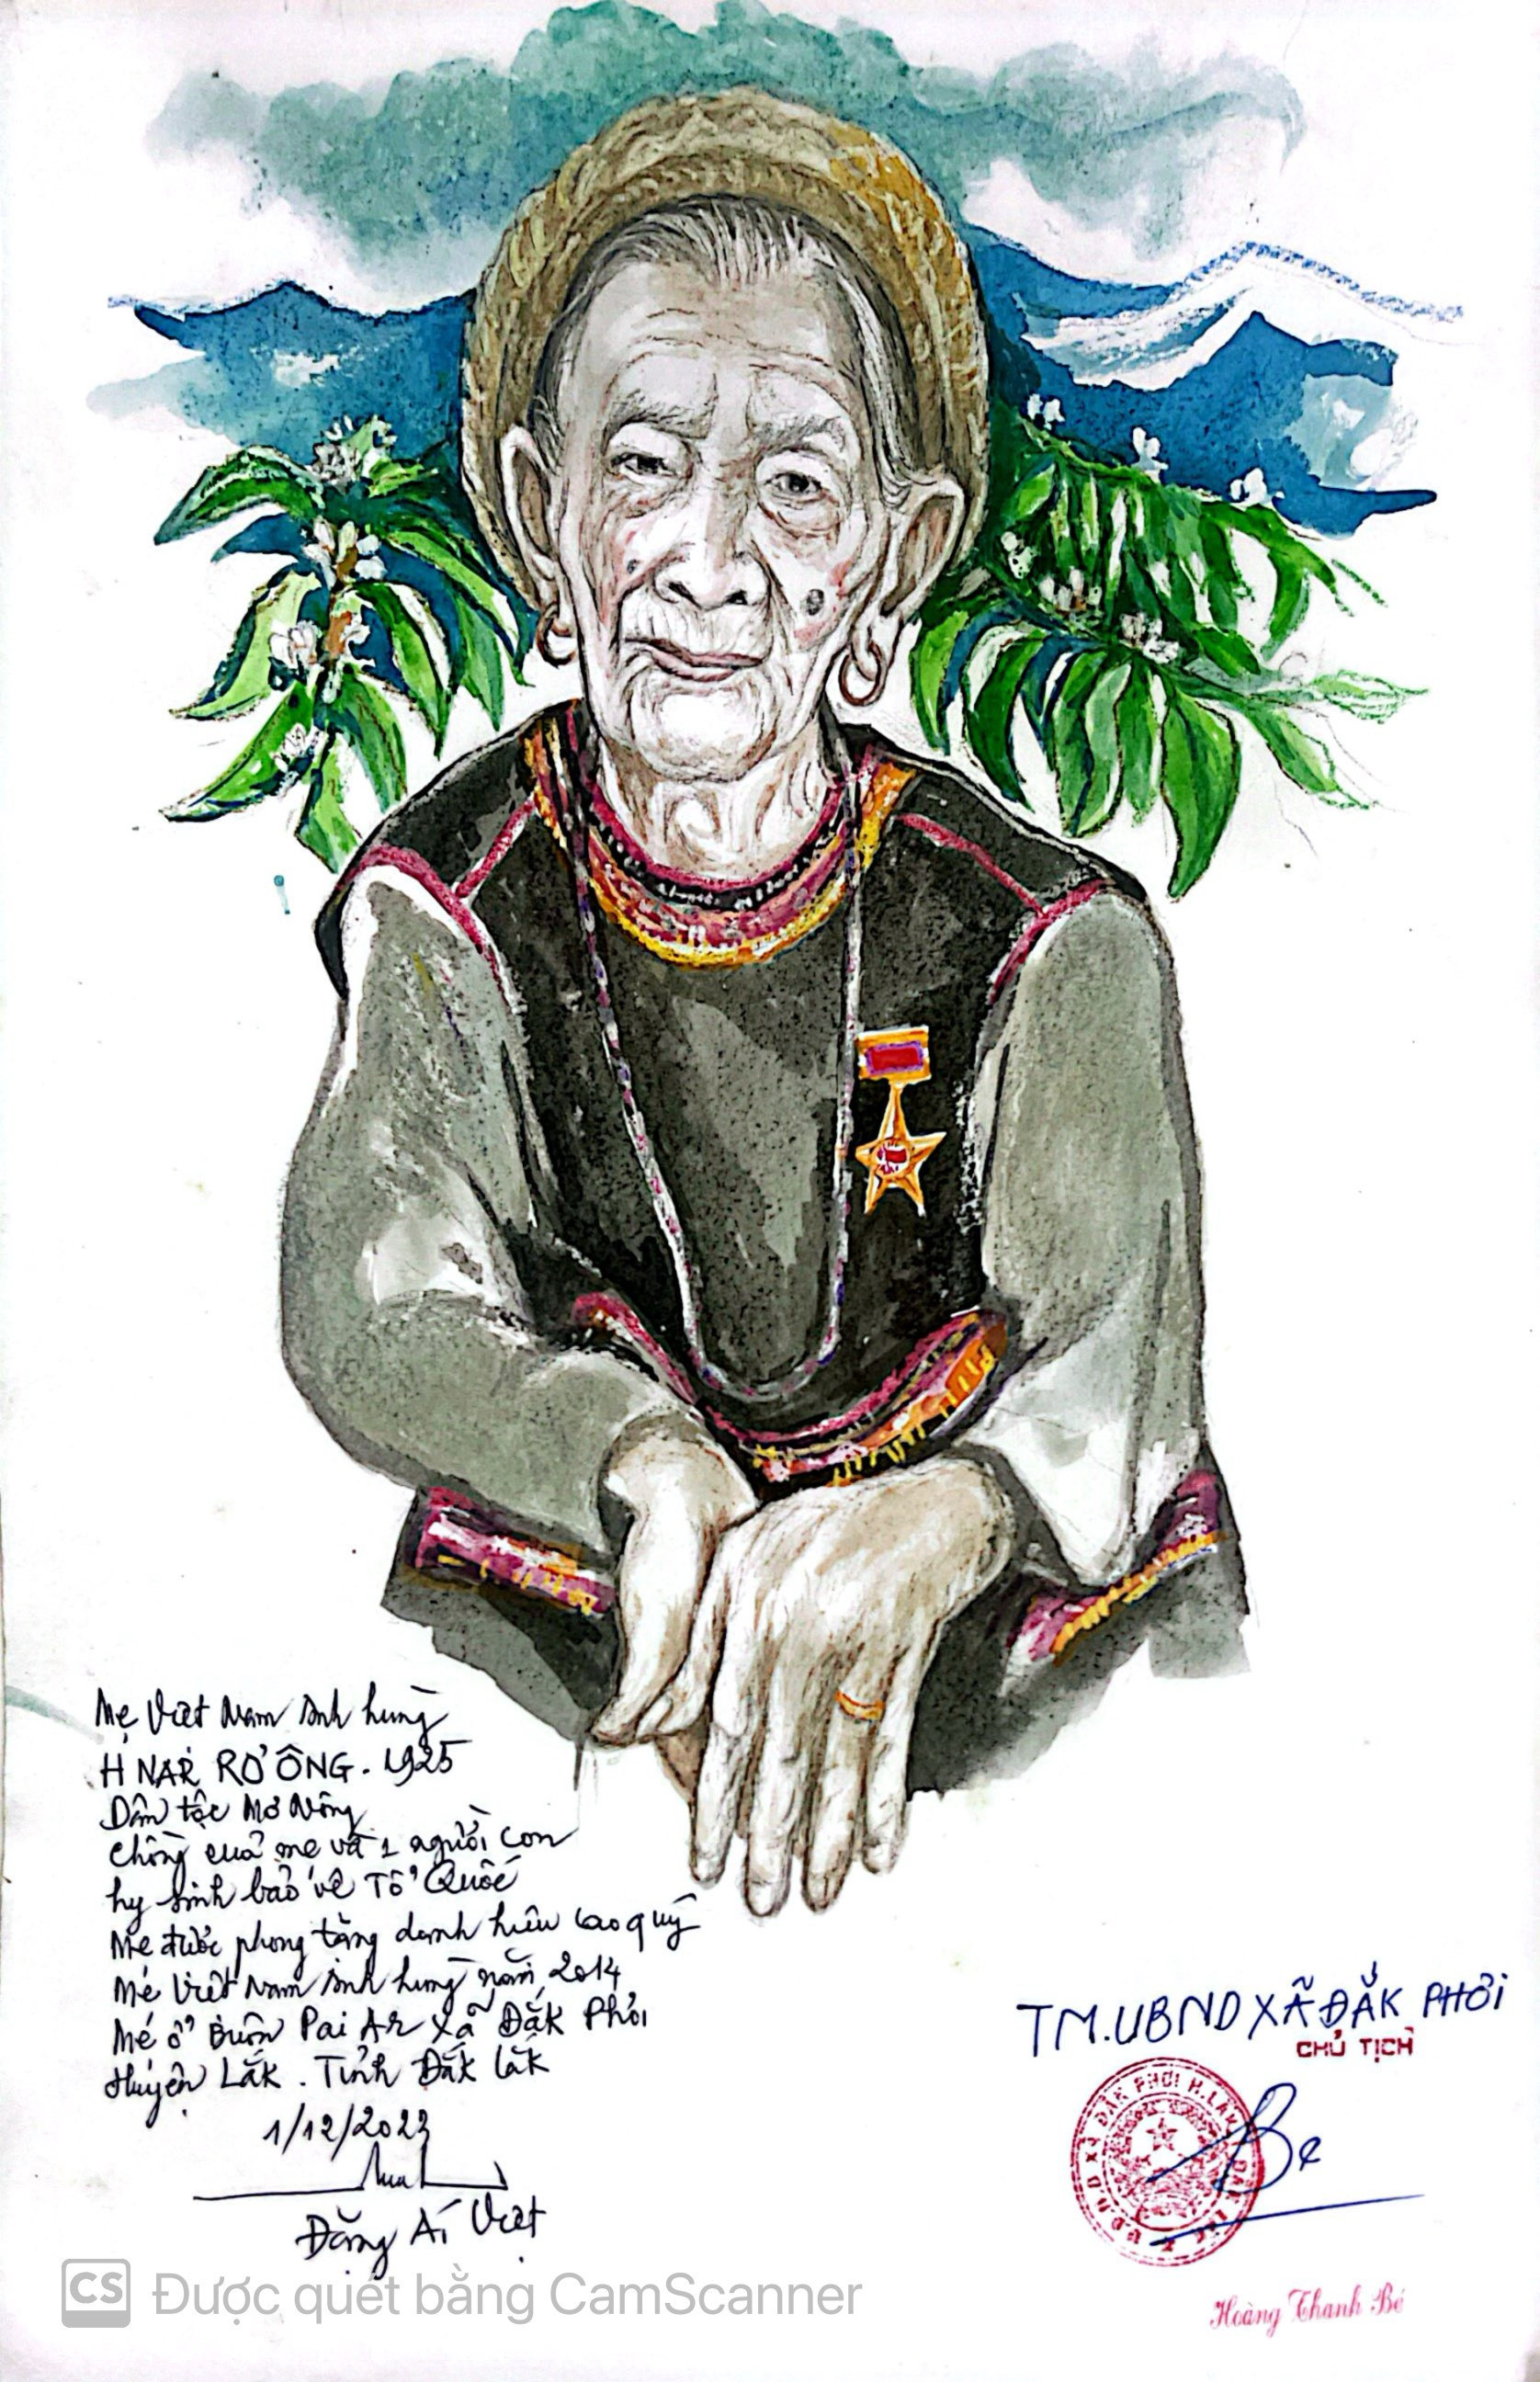 Mẹ Việt Nam Anh hùng
H NAR RƠ ÔNG. 1925
Dân tộc Mơ Nông
Chồng của mẹ và 1 người con
hy sinh bảo vệ Tổ Quốc
Mẹ được phong tặng danh hiệu cao quý
Mẹ Việt Nam Anh hùng năm 2014
Mẹ ở Buôn Pai Ar xã Đắk Phơi
Huyện Lắk. Tỉnh Đắk Lắk
1/12/2022
Đặng Ái Việt
TM.UBND XÃ ĐẮK PHƠI
CHỦ TỊCH
U.B.N.D XÃ ĐẮK PHƠI H.LẮK
Bé
Hoàng Thanh Bé
CS Được quét bằng CamScanner